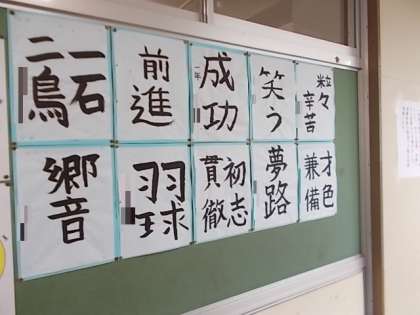 一石
二鳥
前進
成功
笑う
粒々
辛苦
響
羽球
初志
貫徹
夢路
才色
兼備